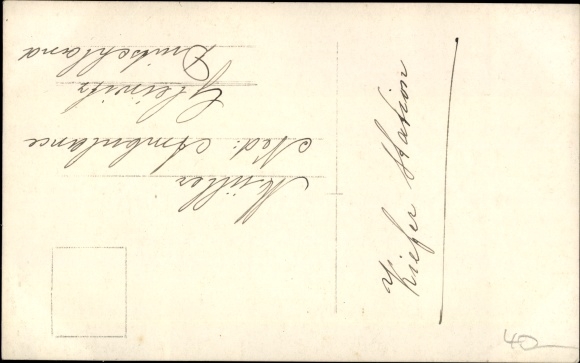 Müller
Ned: Ambulance
Gleiwitz
Deutschland
Kiefer Station
40